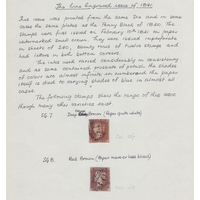 The Line Engraved issue of 1841
This issue was printed from the same Die and in some
cases the same plates as the Penny Black of 1840. The
stamps were first issued on February 10th 1841 on paper
watermarked small crown. They were issued imperforate
in sheets of 240, twenty rows of twelve stamps and had
letters in both bottom corners.
The inks used varied considerably in consistency
and as some contained prussiate of potash, the shades
of colour are almost infinite in number and the paper
itself is apt to varying shades of blue in almost all
cases.
The following stamps show the range of this issue
though many other varieties exist
SG 7. Deep Brown (Paper quite white)
SG 8. Red Brown (Paper more or less blued)